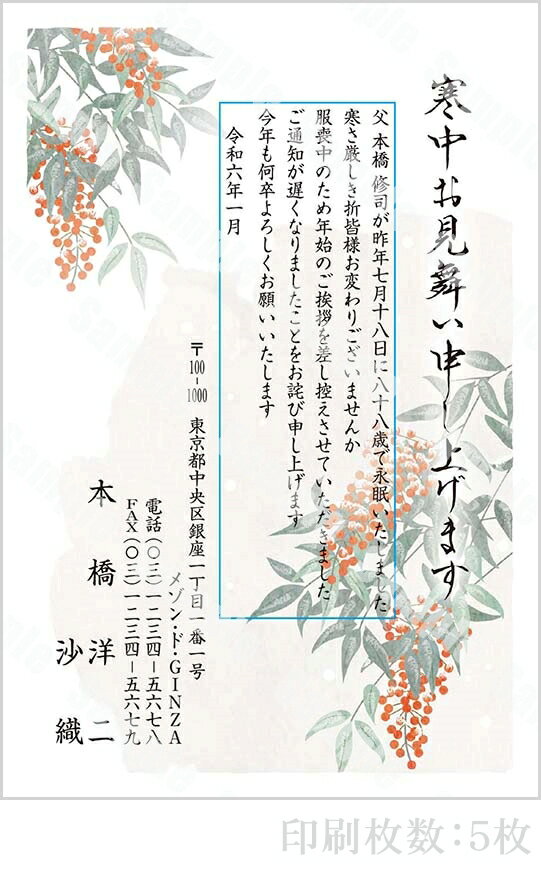 寒中お見舞い申し上げます
父 本橋 修司が昨年七月十八日に八十八歳で永眠いたしました
寒さ厳しき折皆様お変わりございませんか
服喪中のため年始のご挨拶を差し控えさせていただきました
ご通知が遅くなりましたことをお詫び申し上げます
今年も何卒よろしくお願いいたします
令和六年一月
〒100-1000 東京都中央区銀座一丁目一番一号
メゾン・ド・GINZA
電話(〇三)一二三四-五六七八
FAX(〇三)一二三四-五六七九
本橋 洋二
沙織
印刷枚数:5枚